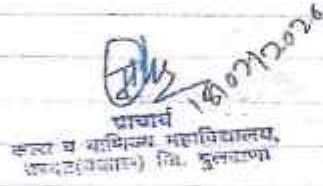 18/02/2026
प्राचार्य
कला व वाणिज्य महाविद्यालय,
जि. बुलढाणा